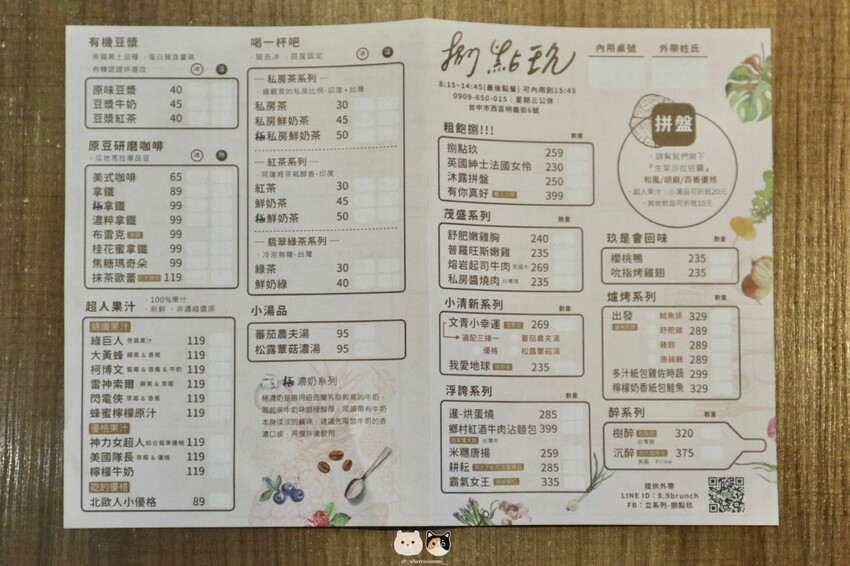 有機豆漿
原味豆漿 40
豆漿牛奶 45
豆漿紅茶 40
原豆研磨咖啡
美式咖啡 65
拿鐵 89
極拿鐵 99
濃粹拿鐵 99
布雷克 99
桂花蜜拿鐵 99
焦糖瑪奇朵 99
抹茶歐蕾 119
超人果汁
・100%果汁
・新鮮・非濃縮還原
綠巨人 奇異果汁 119
大黃蜂 119
柯博文 119
雷神索爾 119
閃電俠 119
蜂蜜檸檬原汁 119
優格果汁
神力女超人 119
美國隊長 草莓&優格 119
檸檬牛奶 119
吃的優格
北歐人小優格 89
喝一杯吧
・甜度固定
私房茶系列
私房茶 30
私房鮮奶茶 45
極私房鮮奶茶 50
紅茶系列
紅茶 30
鮮奶茶 45
極鮮奶茶 50
翡翠綠茶系列
・冷泡無糖・台灣
綠茶 30
鮮奶綠 40
小湯品
蕃茄農夫湯 95
松露蕈菇濃湯 95
極 濃奶系列
捌點玖
8:15~14:45(最後點餐) 可內用到15:45
0909-650-015｜星期三公休
台中市西區明義街6號
內用桌號
外帶姓氏
粗飽捌!!!
數量
捌點玖 259
英國紳士法國女伶 230
沐露拼盤 250
有你真好 399
茂盛系列
數量
舒肥嫩雞胸 240
普羅旺斯嫩雞 235
熔岩起司牛肉 269
私房醬燒肉 235
小清新系列
數量
文青小幸運 269
選配三擇一 蕃茄農夫湯
優格 松露蕈菇湯
我愛地球 235
浮誇系列
數量
暹·烘蛋燒 285
鄉村紅酒牛肉沾麵包 399
米糰唐揚 259
耕耘 285
霸氣女王 335
拼盤
・請幫我們寫下
『生菜沙拉佐醬』
和風/胡麻/百香優格
・超人果汁、小湯品可折抵20元
・其他飲品可折抵10元
玖是會回味
數量
櫻桃鴨 235
吮指烤雞翅 235
爐烤系列
數量
出發 鮭魚排 329
舒肥雞 289
雞翅 289
唐揚雞 289
多汁紙包雞佐時蔬 299
檸檬奶香紙包鮭魚 329
醉系列
數量
樹醉 320
沉醉 375
美國·Prime
提供外帶
LINE ID：8.9brunch
FB：立系列-捌點玖